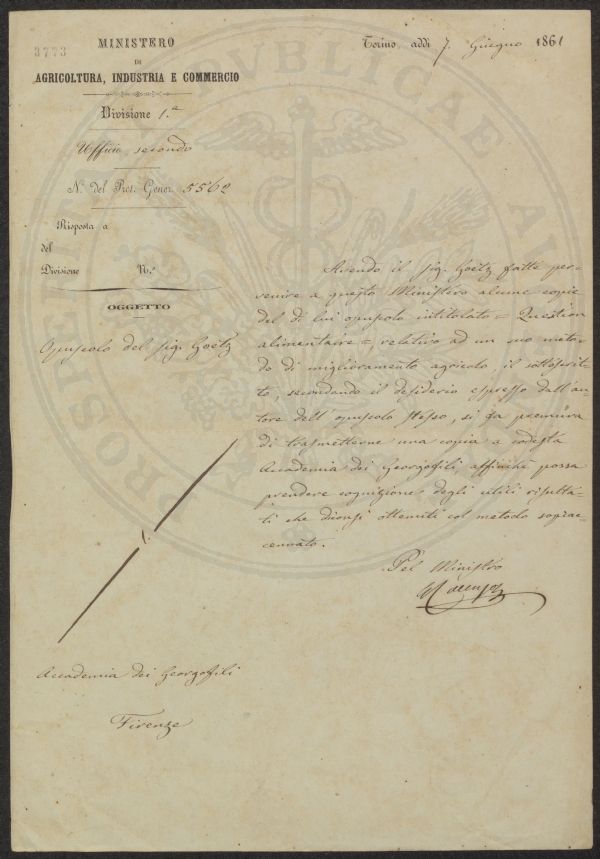 3773
MINISTERO
DI
AGRICOLTURA, INDUSTRIA E COMMERCIO
Divisione 1.a
Ufficio secondo
N.° del Prot. Gener. 5562
Risposta a
del
Divisione N.°
OGGETTO
Opuscolo del sig. Goëtz
Torino, addì 7. Giugno 1861
Avendo il sig. Goëtz fatte per-
venire a questo Ministero alcune copie
del di lui opuscolo intitolato = Question
alimentaire = relativo ad un suo meto-
do di miglioramento agricolo, il sottoscrit-
to, secondando il desiderio espresso dall'au-
tore dell'opuscolo stesso, si fa premura
di trasmetterne una copia a codesta
Accademia dei Georgofili, affinché possa
prendere cognizione degli utili risulta-
ti che diconsi ottenuti col metodo sopraac-
cennato.
Pel Ministro
Accademia dei Georgofili
Firenze
PROSPERITATI PUBLICAE AU